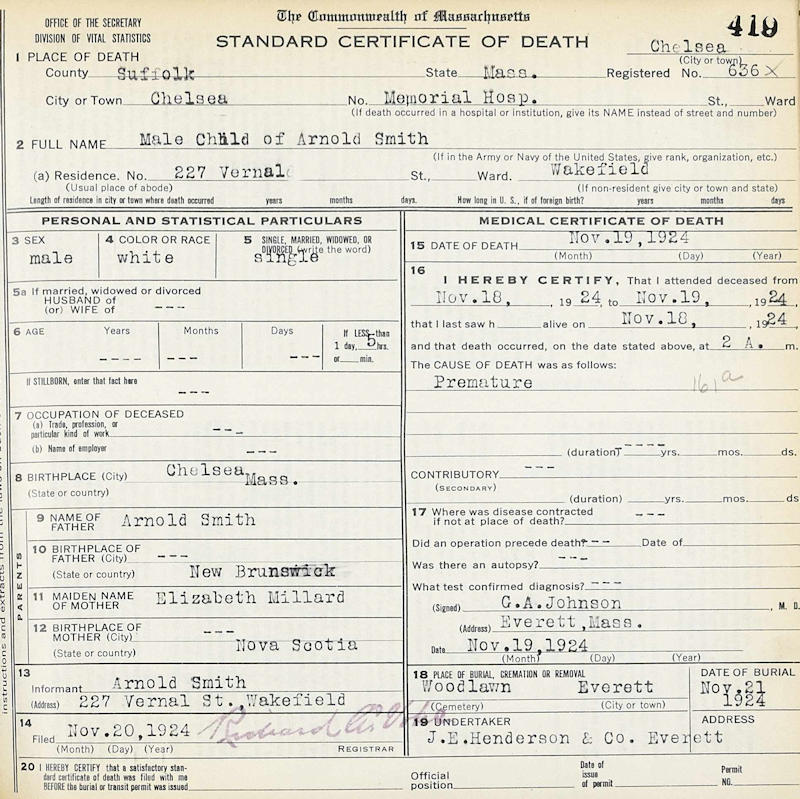 The Commonwealth of Massachusetts
OFFICE OF THE SECRETARY
DIVISION OF VITAL STATISTICS
STANDARD CERTIFICATE OF DEATH
419
Chelsea
(City or town)
1 PLACE OF DEATH
County Suffolk State Mass. Registered No. 636 X
City or Town Chelsea No. Memorial Hosp. St., Ward
(If death occurred in a hospital or institution, give its NAME instead of street and number)
2 FULL NAME Male Child of Arnold Smith
(If in the Army or Navy of the United States, give rank, organization, etc.)
(a) Residence. No. 227 Vernal St., Ward. Wakefield
(Usual place of abode) (If non-resident give city or town and state)
Length of residence in city or town where death occurred years months days. How long in U. S., if of foreign birth? years months days
PERSONAL AND STATISTICAL PARTICULARS
3 SEX male
4 COLOR OR RACE white
5 SINGLE, MARRIED, WIDOWED, OR
DIVORCED (write the word)
single
5a If married, widowed or divorced
HUSBAND of
(or) WIFE of ---
6 AGE Years Months Days If LESS than
1 day, 5 hrs.
---- --- --- or min.
If STILLBORN, enter that fact here
---
7 OCCUPATION OF DECEASED
(a) Trade, profession, or
particular kind of work ---
(b) Name of employer ---
8 BIRTHPLACE (City) Chelsea
(State or country) Mass.
PARENTS
9 NAME OF
FATHER Arnold Smith
10 BIRTHPLACE OF
FATHER (City) ---
(State or country) New Brunswick
11 MAIDEN NAME
OF MOTHER Elizabeth Millard
12 BIRTHPLACE OF
MOTHER (City) ---
(State or country) Nova Scotia
13
Informant Arnold Smith
(Address) 227 Vernal St.,Wakefield
14
Filed Nov.20,1924
(Month) (Day) (Year) REGISTRAR
MEDICAL CERTIFICATE OF DEATH
15 DATE OF DEATH Nov.19,1924
(Month) (Day) (Year)
16
I HEREBY CERTIFY, That I attended deceased from
Nov.18, 1924 to Nov.19, 1924
that I last saw h alive on Nov.18, 1924
and that death occurred, on the date stated above, at 2 A. m.
The CAUSE OF DEATH was as follows:
Premature 161a
(duration) ---- yrs. mos. ds.
CONTRIBUTORY ---
(SECONDARY)
(duration) yrs. mos. ds
17 Where was disease contracted
if not at place of death? ---
Did an operation precede death? --- Date of
Was there an autopsy? ---
What test confirmed diagnosis? ---
(Signed) G.A.Johnson, M. D.
(Address) Everett,Mass.
Date Nov.19,1924
(Month) (Day) (Year)
18 PLACE OF BURIAL, CREMATION OR REMOVAL
Woodlawn Everett
(Cemetery) (City or town)
DATE OF BURIAL
Nov.21
1924
19 UNDERTAKER ADDRESS
J.E.Henderson & Co. Everett
20 I HEREBY CERTIFY that a satisfactory stan-
dard certificate of death was filed with me
BEFORE the burial or transit permit was issued
Official
position
Date of
issue
of permit
Permit
NO.
instructions and extracts from the laws on